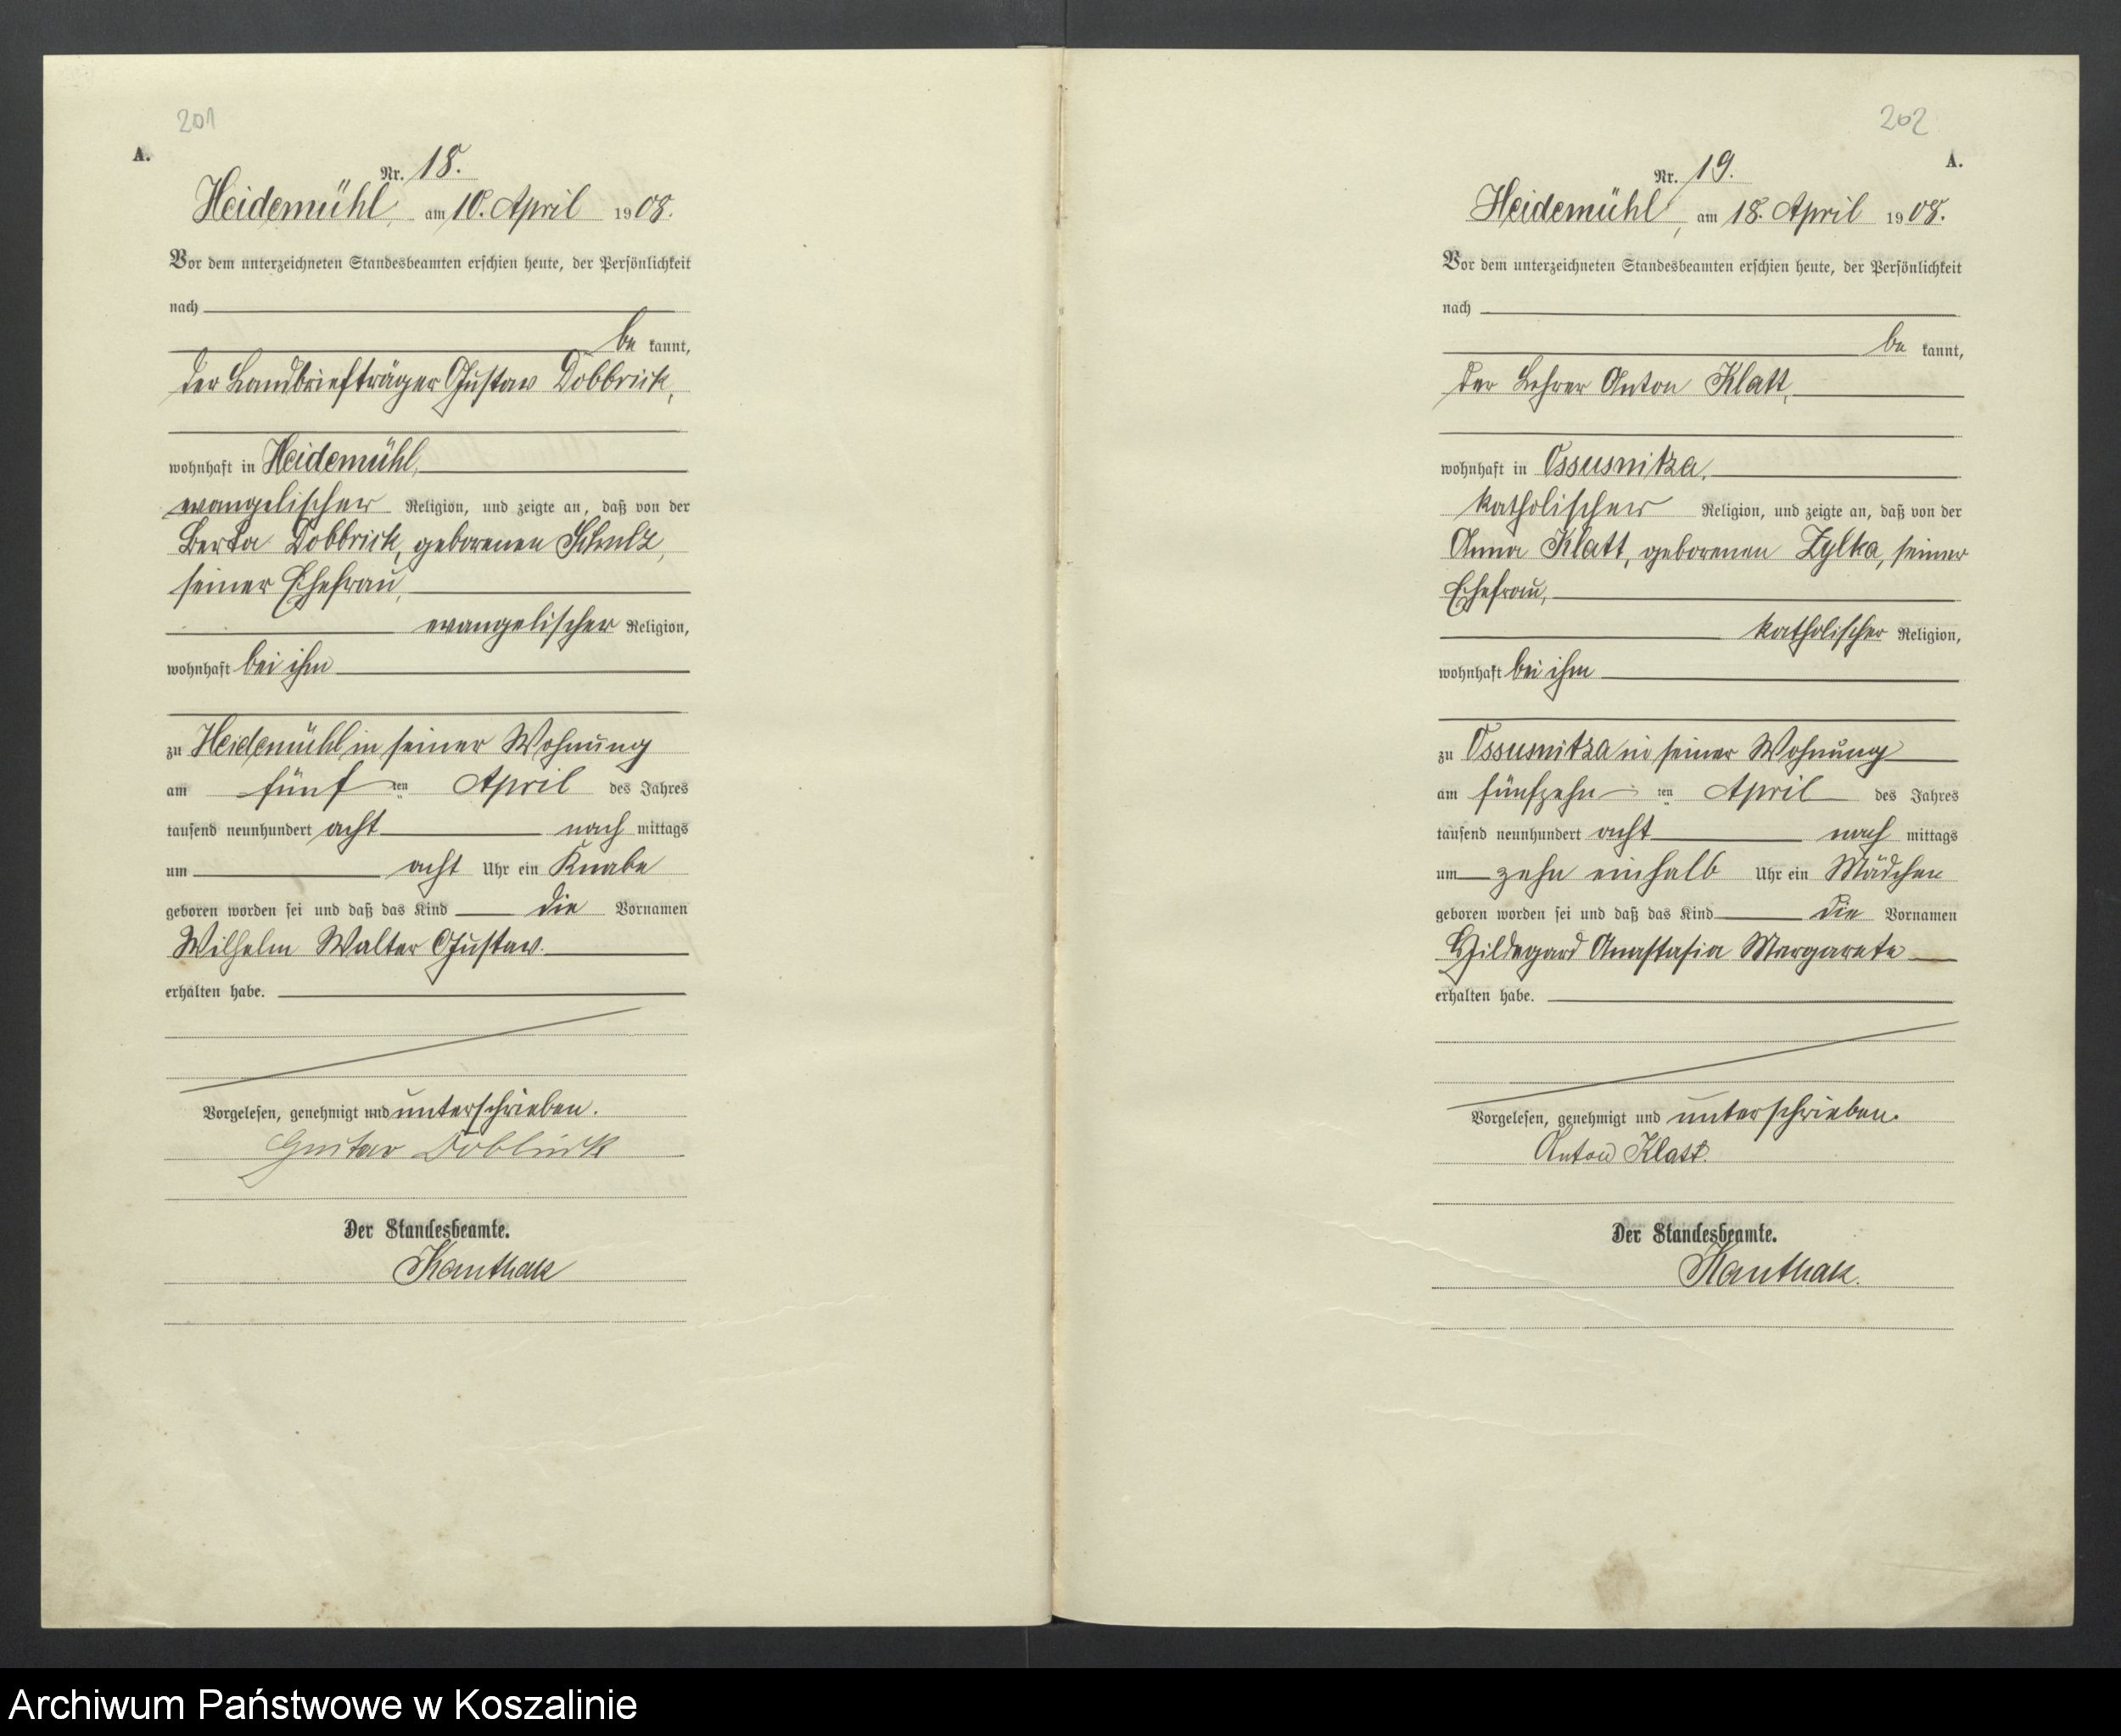 201
A.
Nr. 18.
Heidemühl, am 10. April 1908.
Vor dem unterzeichneten Standesbeamten erschien heute, der Persönlichkeit
nach
be kannt,
der Landbriefträger Gustav Dobbrick,
wohnhaft in Heidemühl,
evangelischer Religion, und zeigte an, daß von der
Berta Dobbrick, geborenen Schulz,
seiner Ehefrau,
evangelischer Religion,
wohnhaft bei ihm
zu Heidemühl in seiner Wohnung
am fünf ten April des Jahres
tausend neunhundert acht nach mittags
um acht Uhr ein Knabe
geboren worden sei und daß das Kind die Vornamen
Wilhelm Walter Gustav.
erhalten habe.
Vorgelesen, genehmigt und unterschrieben.
Gustav Dobbrick
Der Standesbeamte.
Kanthak
202
A.
Nr. 19.
Heidemühl, am 18. April 1908.
Vor dem unterzeichneten Standesbeamten erschien heute, der Persönlichkeit
nach
be kannt,
der Lehrer Anton Klatt,
wohnhaft in Ossusnitza,
katholischer Religion, und zeigte an, daß von der
Anna Klatt, geborenen Zylka, seiner
Ehefrau,
katholischer Religion,
wohnhaft bei ihm
zu Ossusnitza in seiner Wohnung
am fünfzehn ten April des Jahres
tausend neunhundert acht nach mittags
um zehn einhalb Uhr ein Mädchen
geboren worden sei und daß das Kind die Vornamen
Hildegard Anastasia Margarete
erhalten habe.
Vorgelesen, genehmigt und unterschrieben.
Anton Klatt.
Der Standesbeamte.
Kanthak.
Archiwum Państwowe w Koszalinie